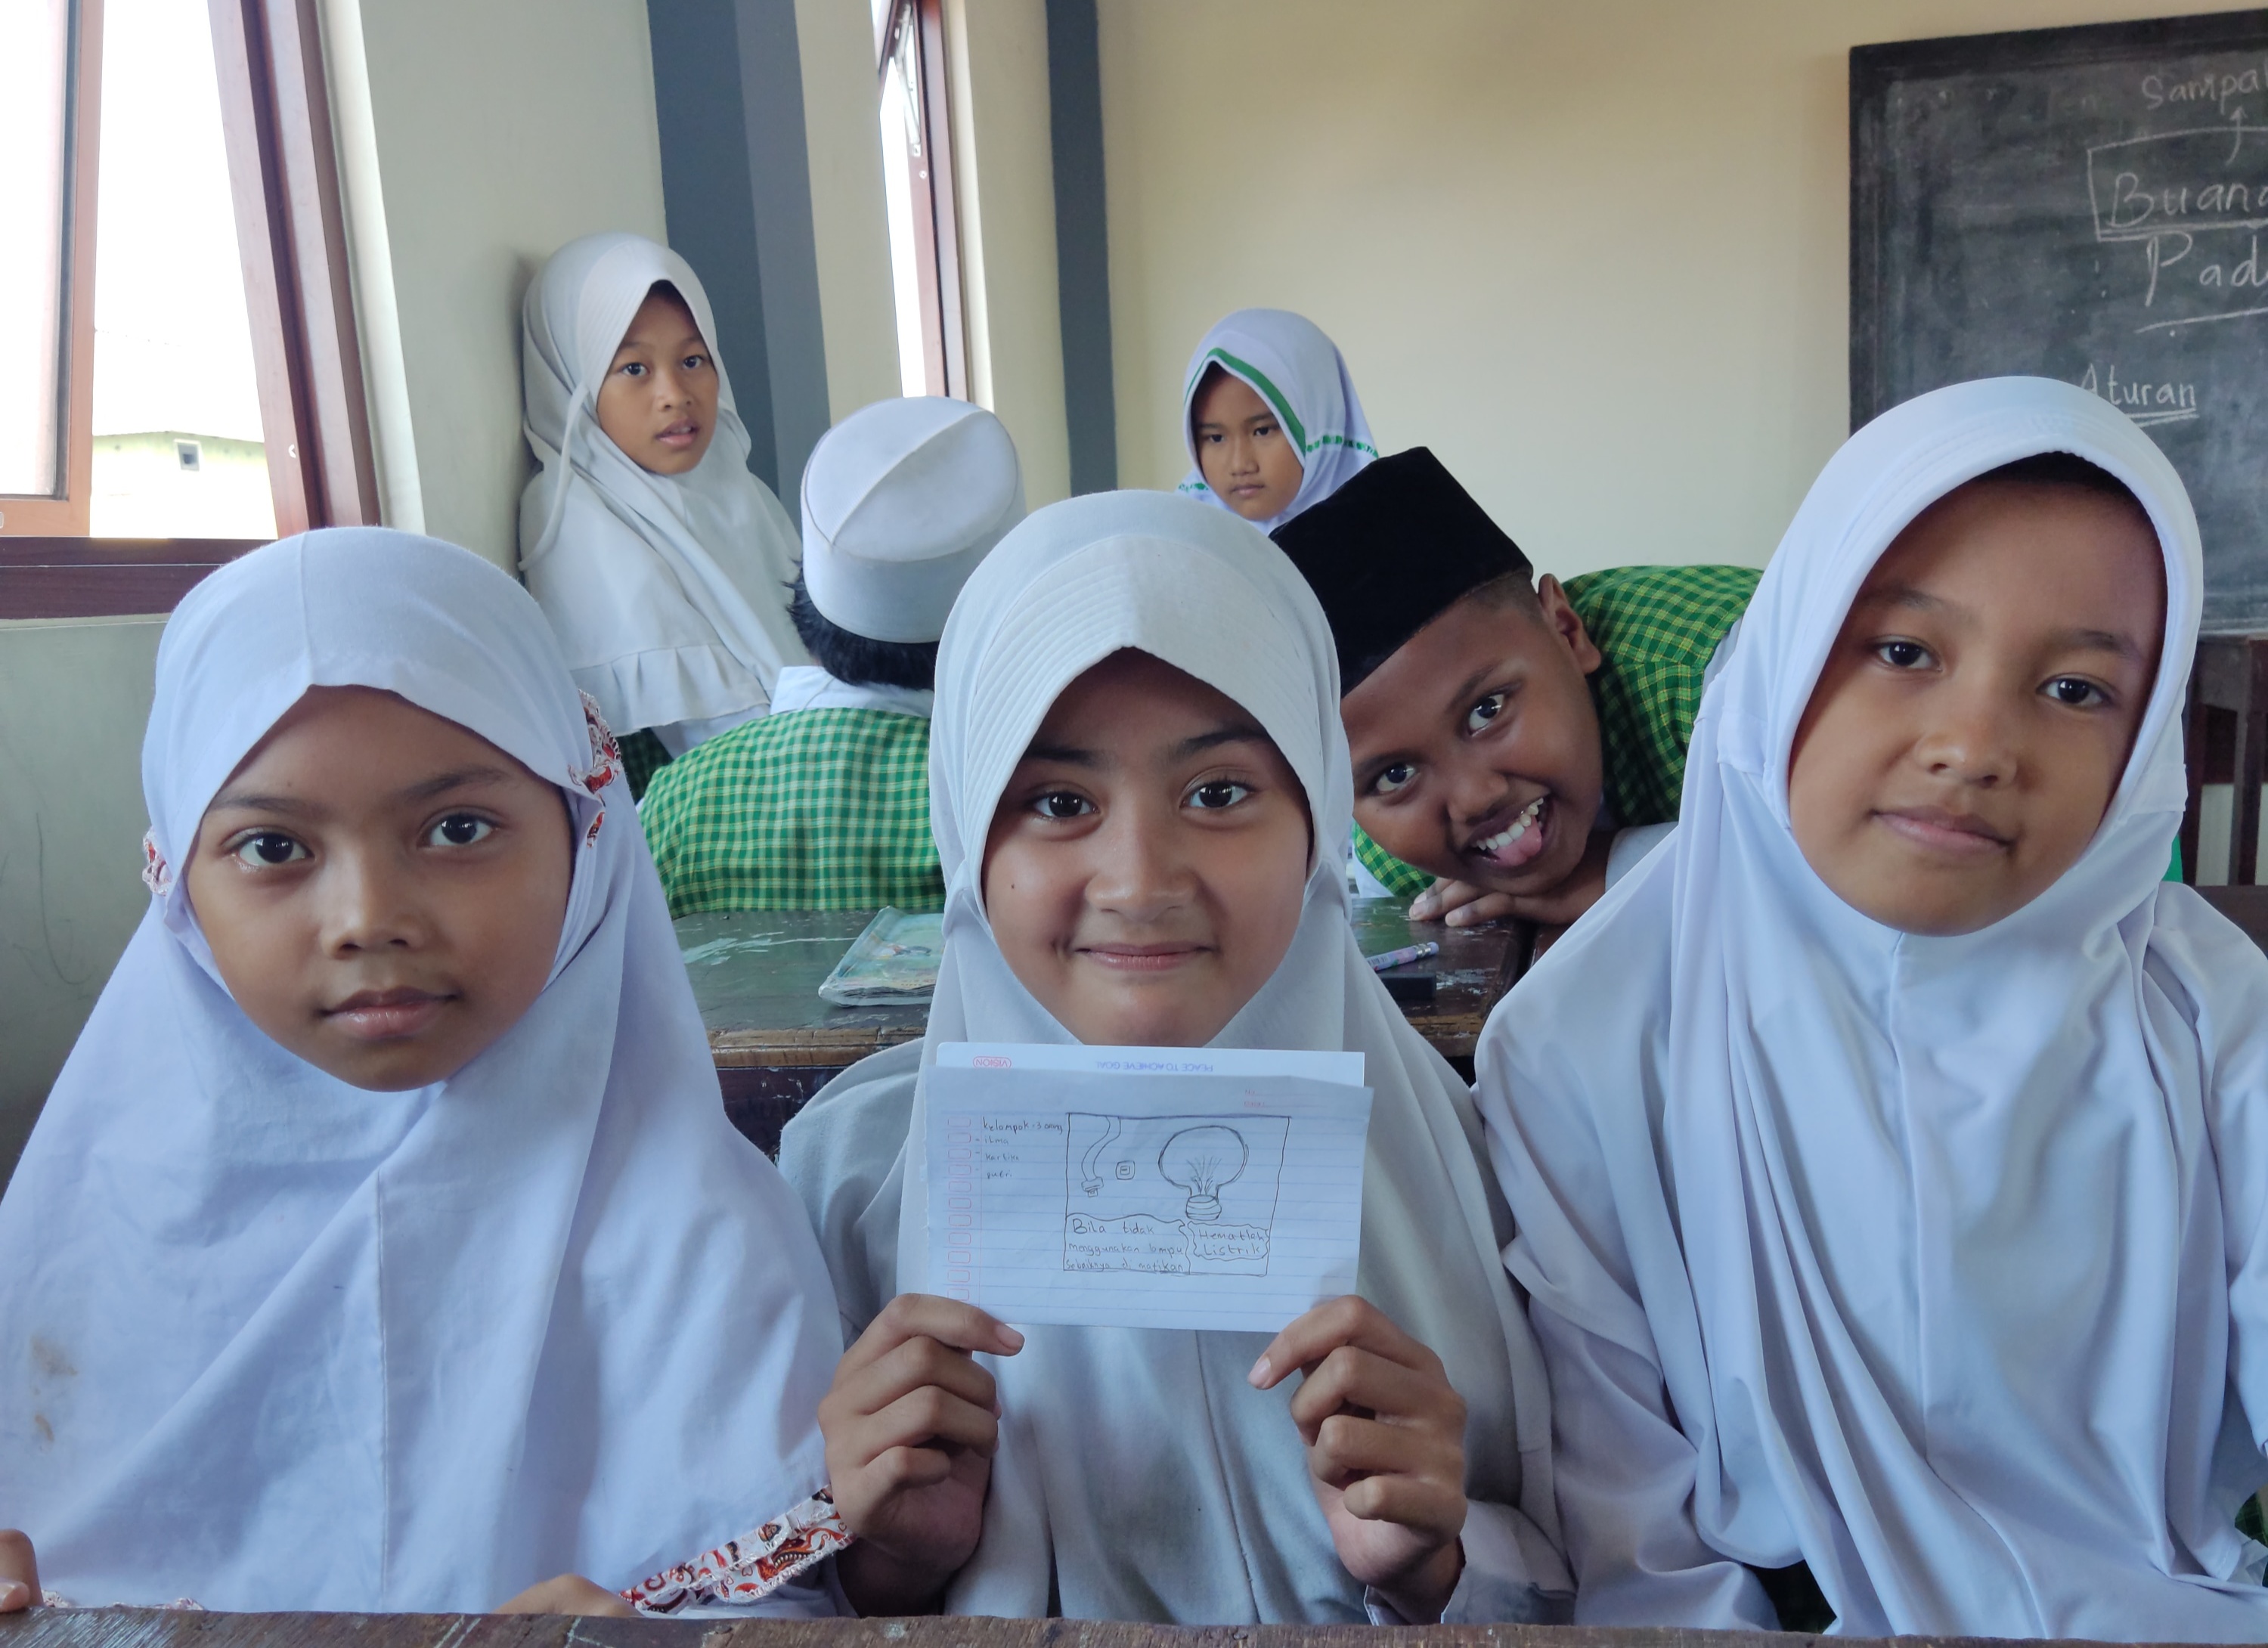 Sampa
Buan
Pad
Aturan
VISION
PEACE TO ACHIEVE GOAL
kelompok : 3 orang
ilma
putri
Bila tidak
menggunakan lampu
Sebaiknya di matikan
Hematlah
Listrik